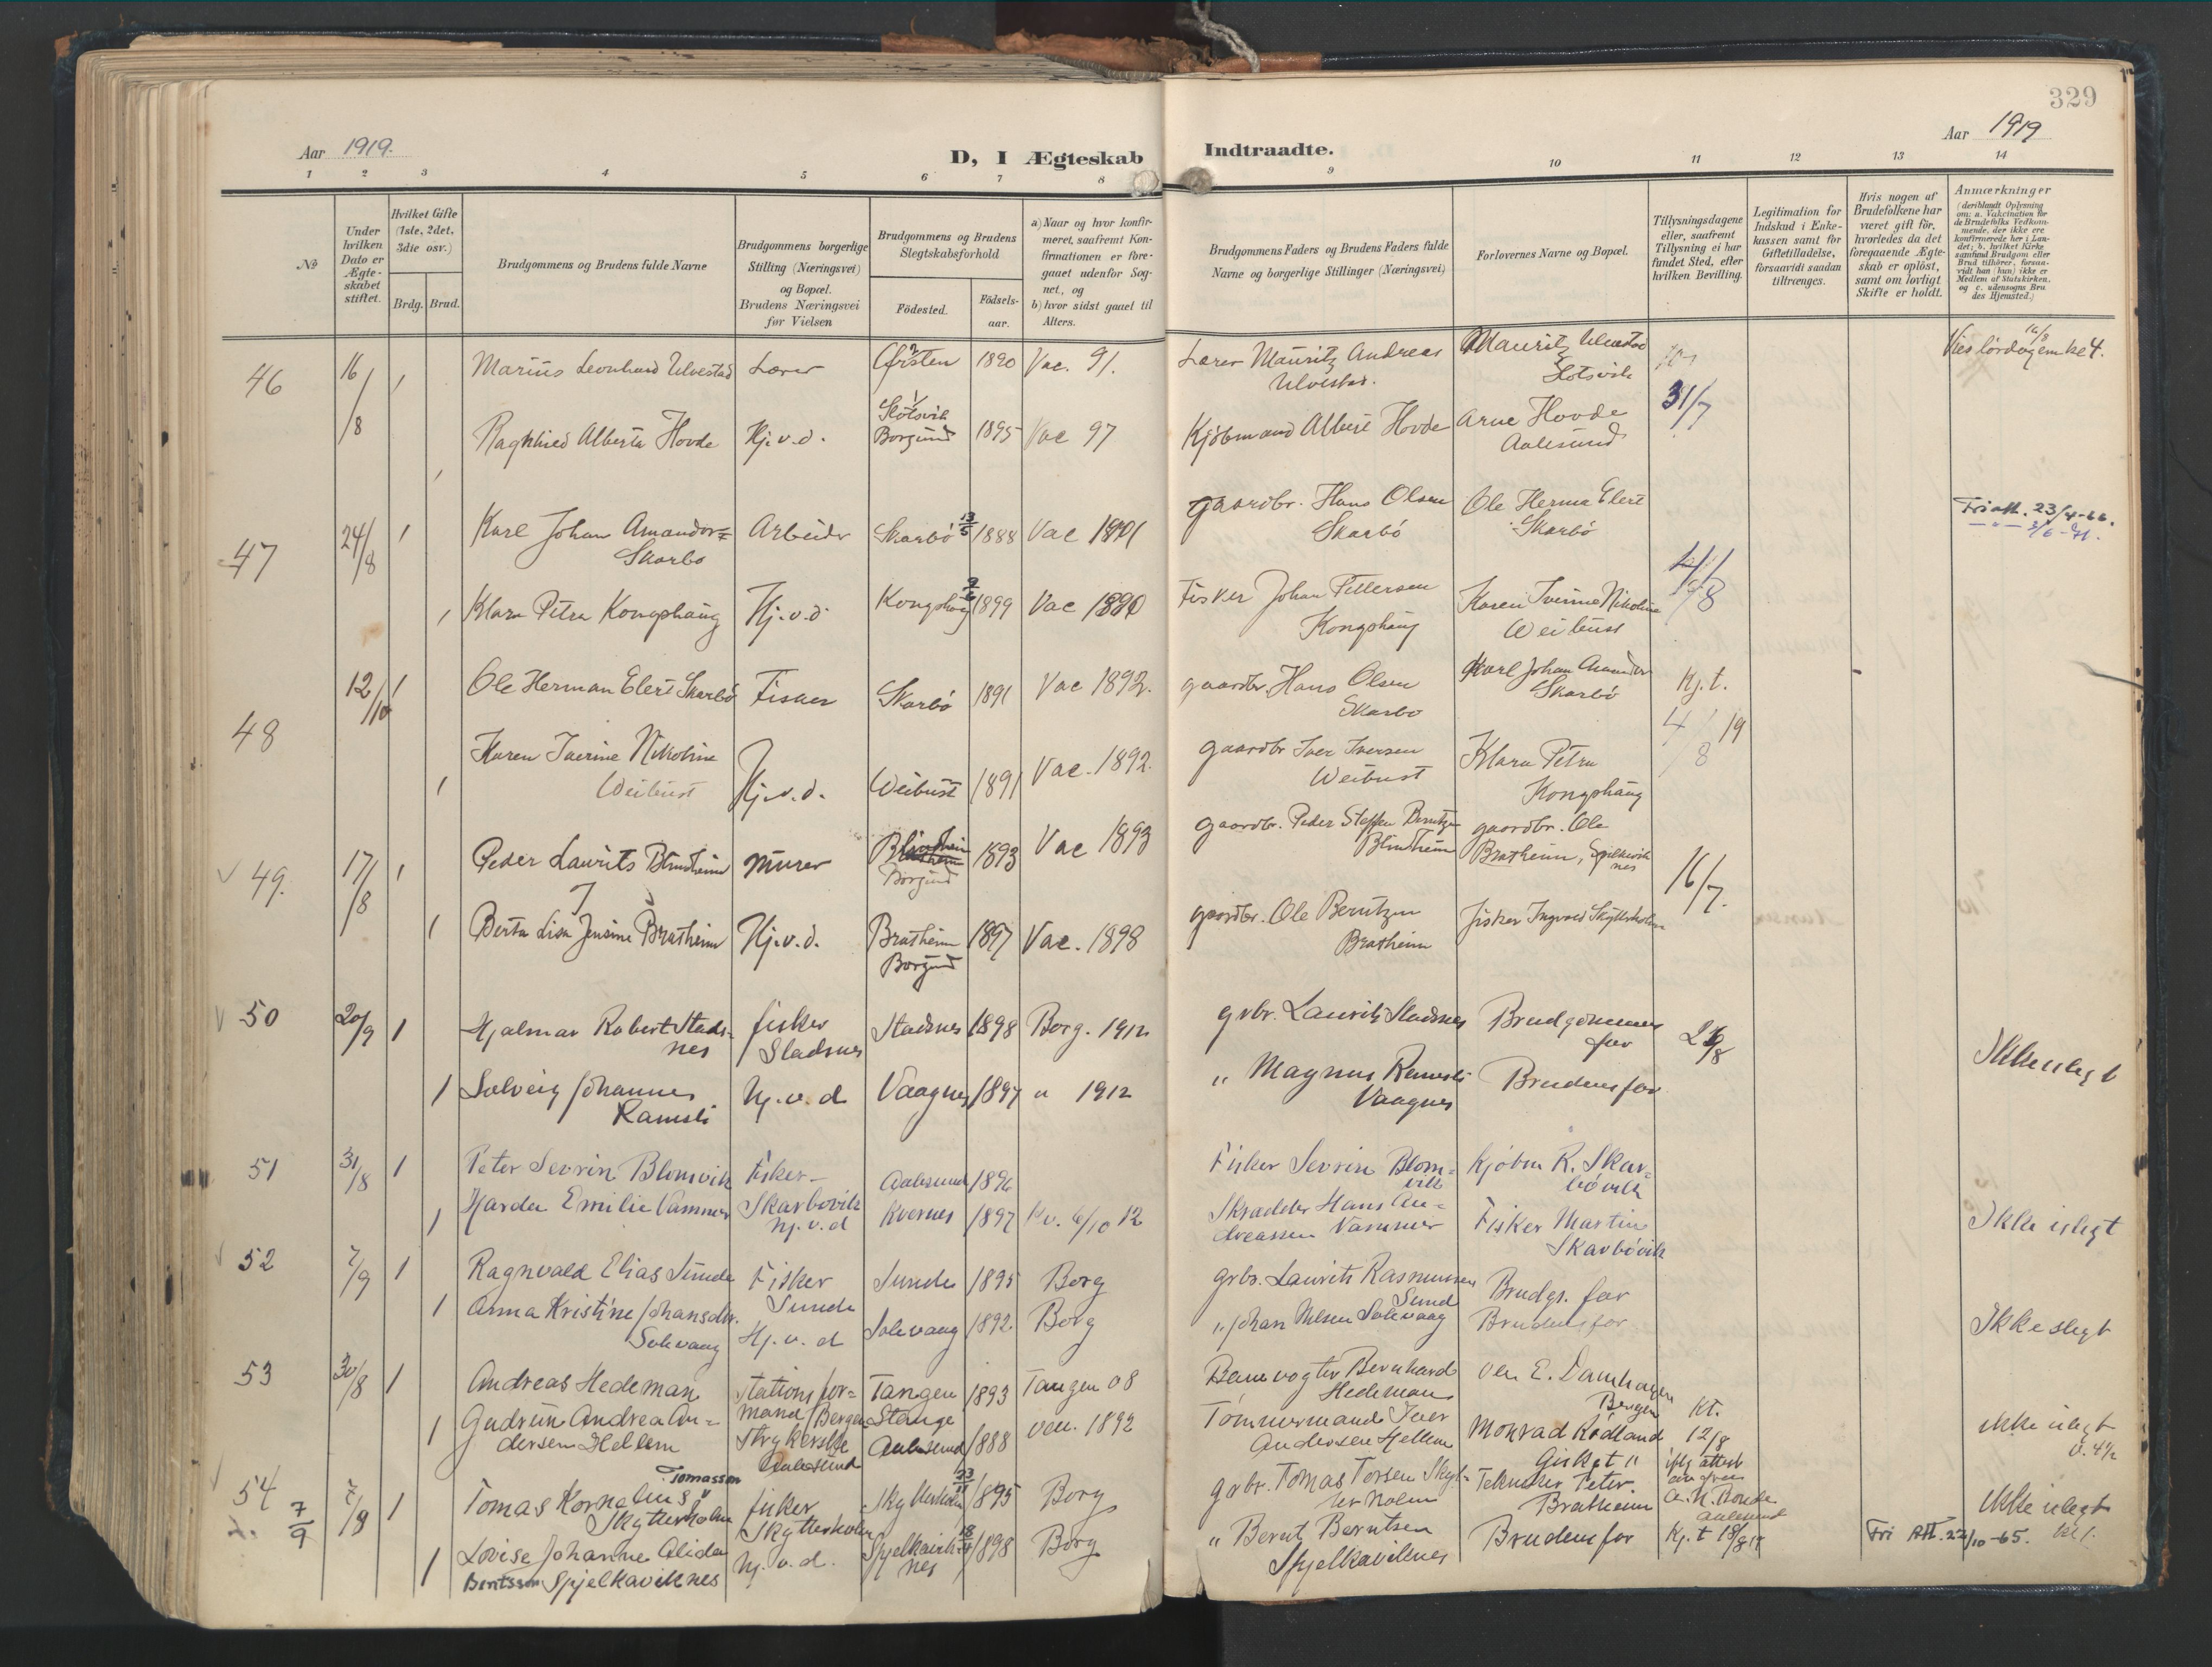 329
Aar 1919.
D, I Ægteskab
Indtraadte.
Aar 1919
1 2 3 4 5 6 7 8 9 10 11 12 13 14
No
Under hvilken Dato er Ægteskabet stiftet.
Hvilket Gifte (1ste, 2det, 3die osv.)
Brdg. Brud.
Brudgommens og Brudens fulde Navne
Brudgommens borgerlige Stilling (Næringsvei) og Bopæl. Brudens Næringsvei før Vielsen
Brudgommens og Brudens Slegtskabsforhold
Födested.
Födsels-aar.
a) Naar og hvor konfirmeret, saafremt Konfirmationen er foregaaet udenfor Sognet, og
b) hvor sidst gaaet til Alters.
Brudgommens Faders og Brudens Faders fulde Navne og borgerlige Stillinger (Næringsvei)
Forlovernes Navne og Bopæl.
Tillysningsdagene eller, saafremt Tillysning ei har fundet Sted, efter hvilken Bevilling.
Legitimation for Indskud i Enkekassen samt for Giftetilladelse, forsaavidt saadan tiltrænges.
Hvis nogen af Brudefolkene har været gift før, hvorledes da det foregaaende Ægteskab er oplöst, samt om lovligt Skifte er holdt.
Anmærkninger (deriblandt Oplysning om: a. Vakcination for de Brudefolks Vedkommende, der ikke ere konfirmerede her i Landet; b. hvilket Kirkesamfund Brudgom eller Brud tilhörer, forsaavidt han (hun) ikke er Medlem af Statskirken, og c. udensogns Brudes Hjemsted.)
46 16/8 1 Marius Leonhard Ulvestad Lærer Ørsten 1890 Vac. 91. Lærer Mauritz Andreas Ulvestad. Mauritz Ulvestad Slotsvik Vies lördag 16/8 em kl 4.
1 Ragnhild Alberta Hovde Hj.v.d. Slotsvik Borgund 1895 Vac 97 Kjöbmand Albert Hovde Arne Hovde Aalesund 31/7
47 24/8 1 Karl Johan Amandus Skarbö Arbeider Skarbö 13/5 1888 Vac 1891 gaardbr. Hans Olsen Skarbö Ole Herman Elert Skarbö Fri att. 23/4-66.
1 Klara Petra Kongshaug Hj.v.d. Kongshaug 1899 Vac 1890 Fisker Johan Pettersen Kongshaug Karen Iverine Nikoline Weibust 4/8
48 12/10 1 Ole Herman Elert Skarbö Fisker Skarbö 1891 Vac 1892. gaardbr. Hans Olsen Skarbö Karl Johan Amandus Skarbö Kj.t.
1 Karen Iverine Nikoline Weibust Hj.v.d. Weibust 1891 Vac. 1892. gaardbr Iver Iversen Weibust Klara Petra Kongshaug 4/8 19
49. 17/8 1 Peder Laurits Blindheim Murer Blindheim Borgund 1893 Vac 1893 gaardbr. Peder Steffen Berntzen Blindheim gaardbr. Ole Bratheim, Spilkeviknes 16/7.
1 Berta Lisa Jensine Bratheim Hj.v.d. Bratheim Borgund 1897 Vac. 1898 gaardbr. Ole Berntzen Bratheim fisker Ingvald Skytterholm
50 20/9 1 Hjalmar Robert Stadsnes fisker Stadsnes Stadsnes 1898 Borg. 1912 grbr. Laurits Stadsnes Brudgommens far
1 Solveig Johannes Ramsli Hj.v.d Vaagnes 1897 " 1912 " Magnus Ramsli Vaagnes Brudens far Ikke slegt
51 31/8 1 Peter Severin Blomvik Fisker Skarbövik Aalesund 1896 Fisker Severin Blomvik kjöbm R. Skarbövik
1 Harda Emilie Vammer Hj.v.d Kvernes 1897 Kv. 6/10 12 Skrædder Hans Andreassen Vammer Fisker Martin Skarbövik Ikke islegt
52 7/9 1 Ragnvald Elias Sunde Fisker Sunde Sunde 1895 Borg grbr. Laurits Rasmussen Sund Brudgs. far
1 Anna Kristine Johansdtr. Solevaag Hj.v.d Solevaag 1892 Borg " Johan Nilsen Solevaag Brudens far Ikke slegt
53 30/8 1 Andreas Hedeman Stationsformand Bergen Tangen Stange 1893 Tangen 08 Banevogter Bernhard Hedeman Ole E. Damhagen Bergen Kt. 12/8
1 Gudrun Andrea Andersen Hellem Strykerske Aalesund Aalesund 1888 1892 Tömmermand Iver Andersen Hellem Monrad Rödland ikke islegt
54 7/9 7/9 1 Tomas Kornelius Tomassen Skytterholm fisker Skytterholm Skytterholm 1895 Borg grbr. Tomas Torsen Skytterholm Tekniker Peter Bratheim Aalesund ikke islegt kl 1.
1 Lovise Johanne Alida Berntssen Spjelkaviknes Hj.v.d. Spjelkaviknes 18/4 1898 Borg " Bernt Berntsen Spjelkaviknes Brudens far Kj.t 18/8 19 Fri Att. 22/10-65.